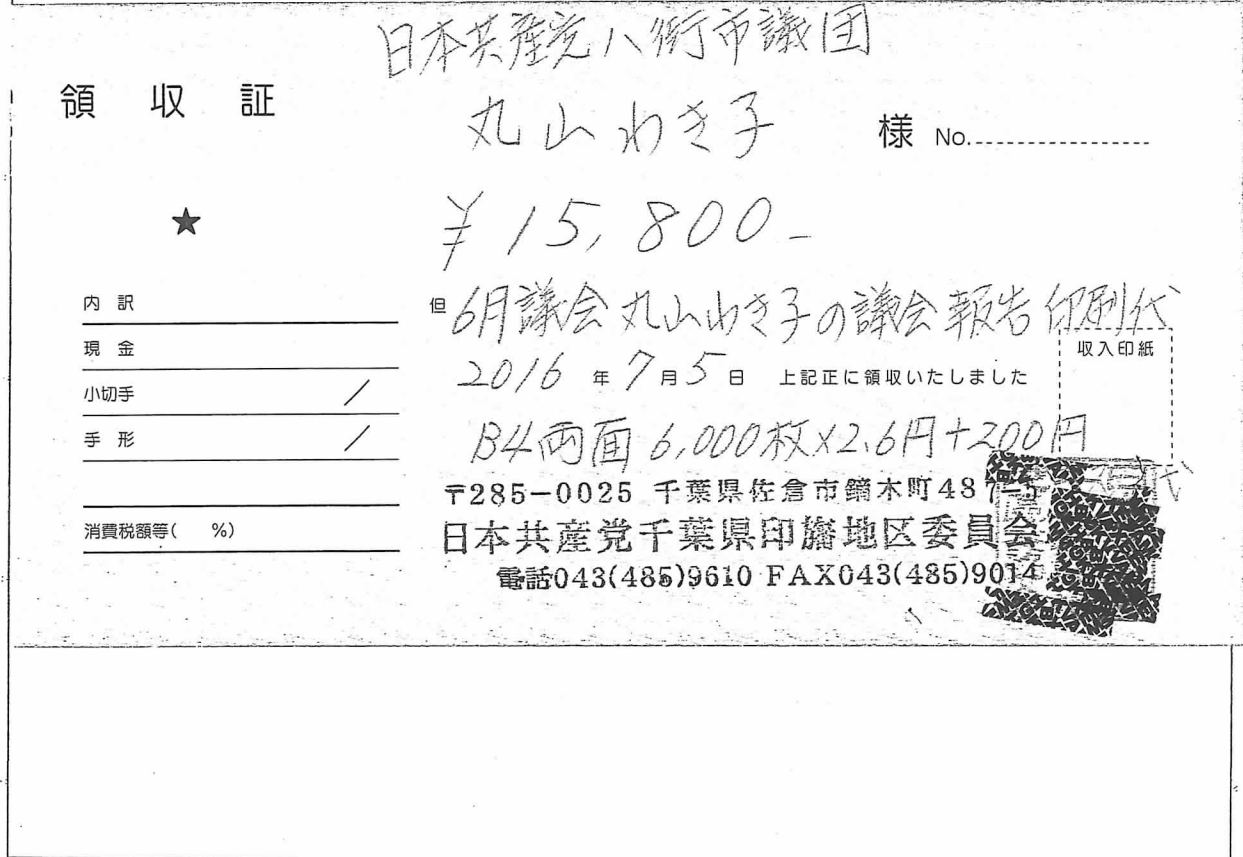 日本共産党八街市議団
領収証
丸山わき子 様 No.
★
¥15,800-
内訳
但 6月議会丸山わき子の議会報告印刷代
現金
収入印紙
2016年7月5日 上記正に領収いたしました
小切手 /
手形 /
B4両面 6,000枚×2.6円+200円
代
〒285-0025 千葉県佐倉市鏑木町487-5
消費税額等( %)
日本共産党千葉県印旛地区委員会
電話043(485)9610 FAX043(485)9014